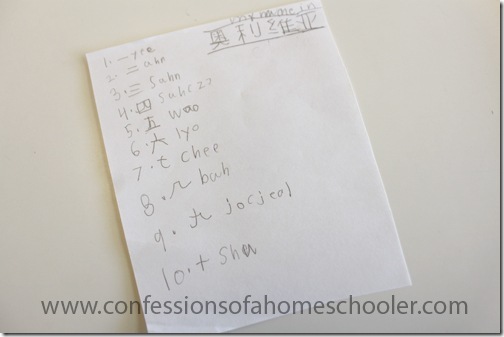 my name in
奥利维亚
1. 一 yee
2. 二 ahn
3. 三 Sahn
4. 四 Suhczz
5. 五 wao
6. 六 lyo
7. 七 chee
8. 八 bah
9. 九 jo(jeo)
10. 十 Sha
www.confessionsofahomeschooler.com